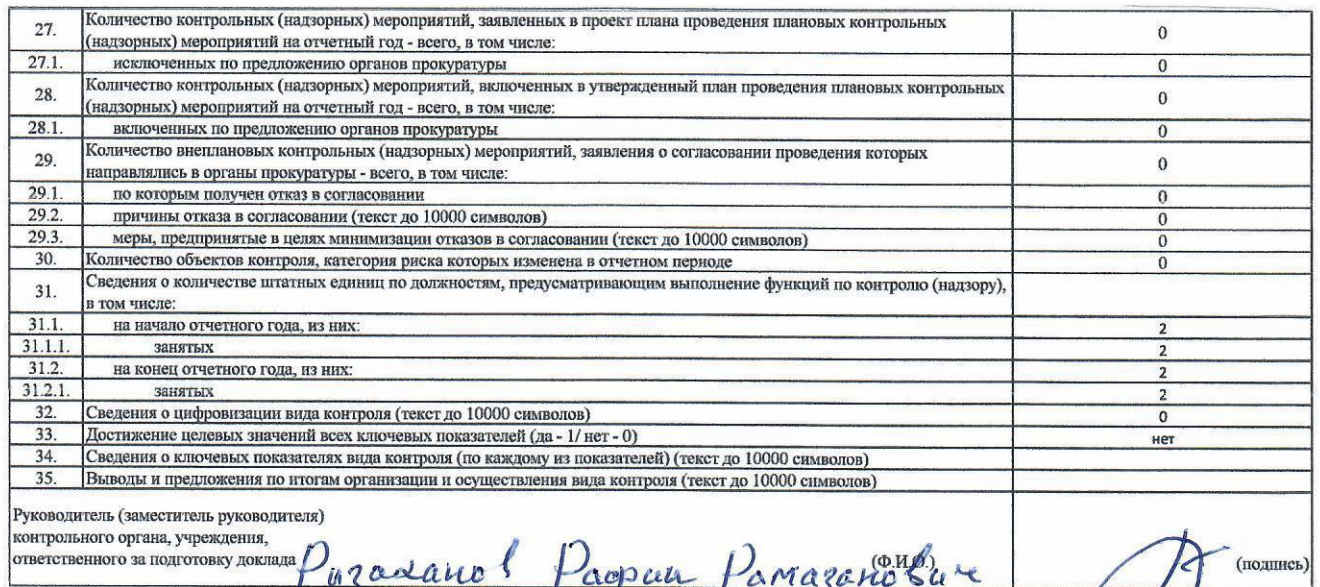 27. Количество контрольных (надзорных) мероприятий, заявленных в проект плана проведения плановых контрольных
(надзорных) мероприятий на отчетный год - всего, в том числе: 0
27.1. исключенных по предложению органов прокуратуры 0
28. Количество контрольных (надзорных) мероприятий, включенных в утвержденный план проведения плановых контрольных
(надзорных) мероприятий на отчетный год - всего, в том числе: 0
28.1. включенных по предложению органов прокуратуры 0
29. Количество внеплановых контрольных (надзорных) мероприятий, заявления о согласовании проведения которых
направлялись в органы прокуратуры - всего, в том числе: 0
29.1. по которым получен отказ в согласовании 0
29.2. причины отказа в согласовании (текст до 10000 символов) 0
29.3. меры, предпринятые в целях минимизации отказов в согласовании (текст до 10000 символов) 0
30. Количество объектов контроля, категория риска которых изменена в отчетном периоде 0
31. Сведения о количестве штатных единиц по должностям, предусматривающим выполнение функций по контролю (надзору),
в том числе:
31.1. на начало отчетного года, из них: 2
31.1.1. занятых 2
31.2. на конец отчетного года, из них: 2
31.2.1. занятых 2
32. Сведения о цифровизации вида контроля (текст до 10000 символов) 0
33. Достижение целевых значений всех ключевых показателей (да - 1/ нет - 0) нет
34. Сведения о ключевых показателях вида контроля (по каждому из показателей) (текст до 10000 символов)
35. Выводы и предложения по итогам организации и осуществления вида контроля (текст до 10000 символов)
Руководитель (заместитель руководителя)
контрольного органа, учреждения,
ответственного за подготовку доклада (Ф.И.О.) (подпись)